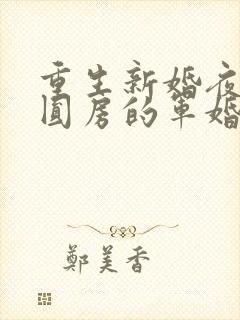 重生新婚夜
圓房的軍婚
鄭美香